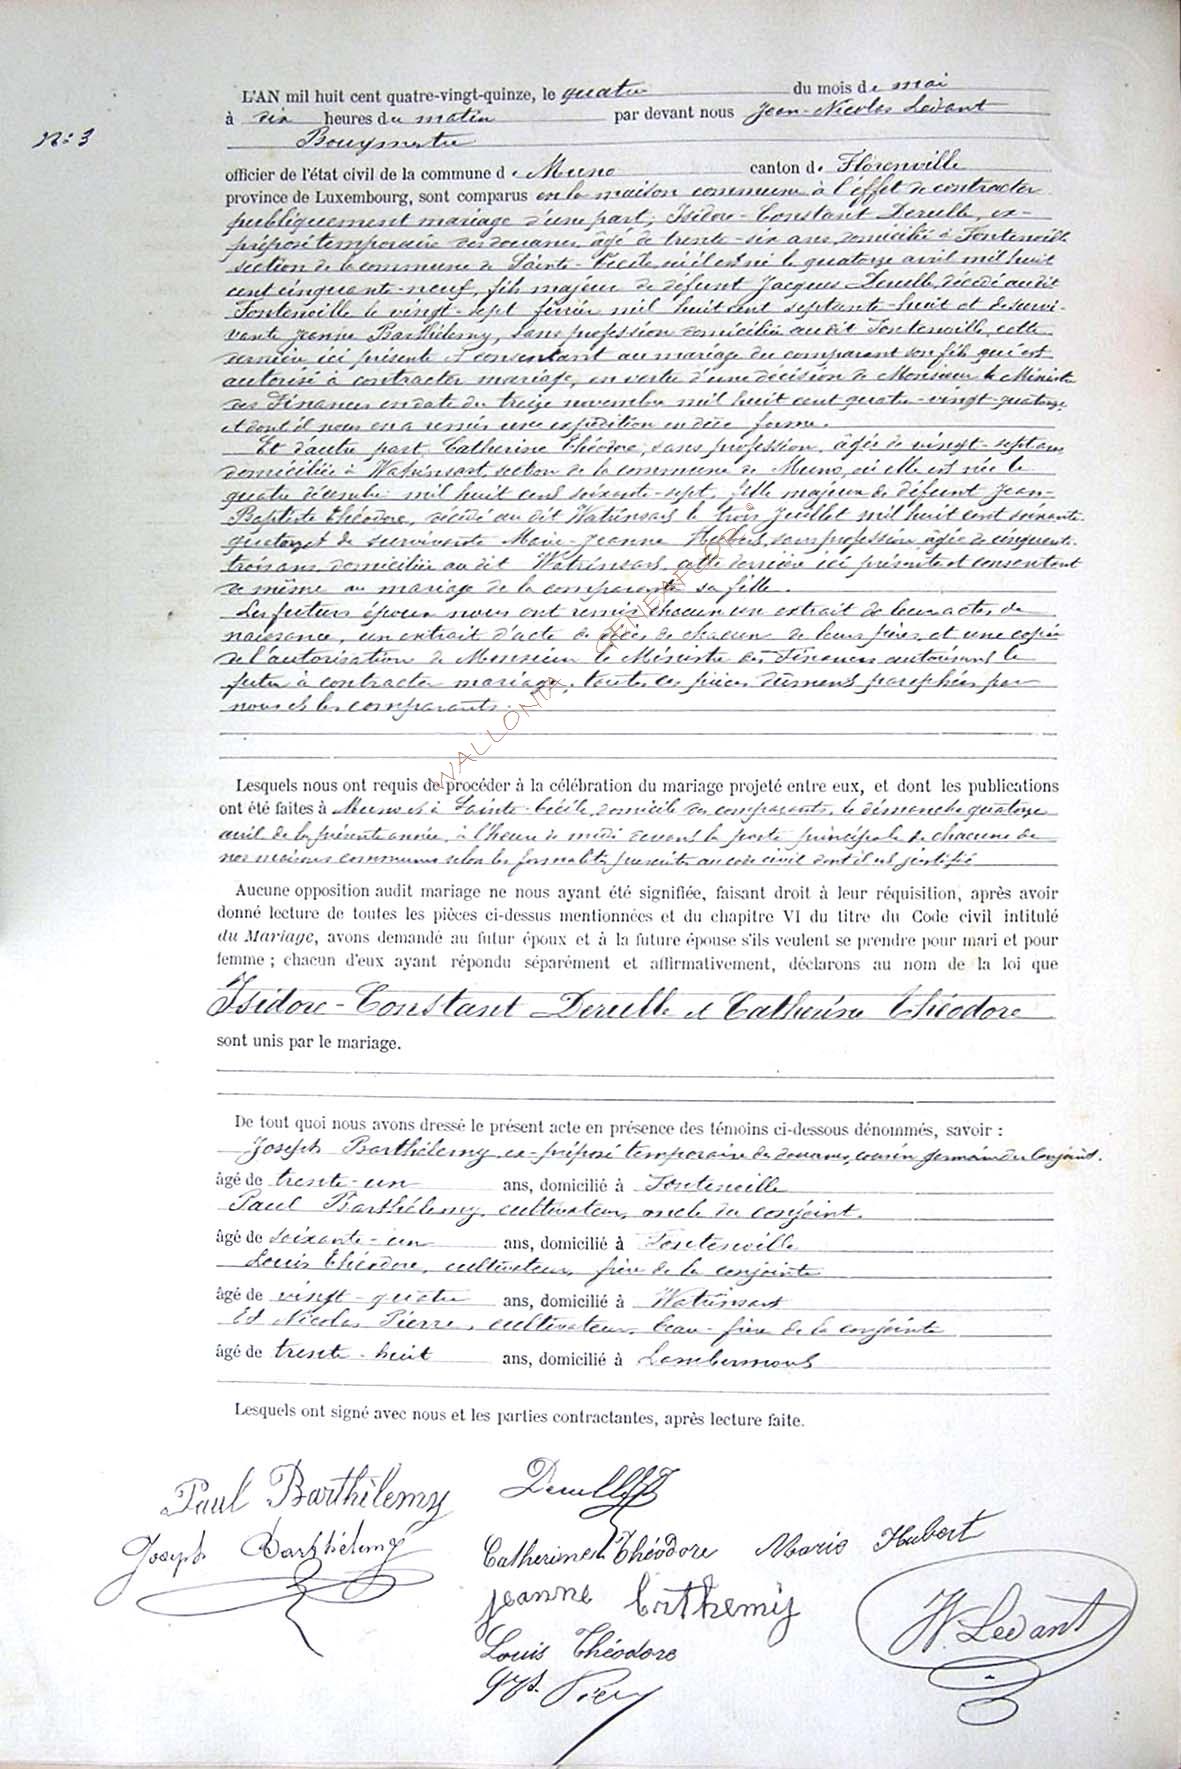 N° 3
L'AN mil huit cent quatre-vingt-quinze, le quatre du mois de mai
à dix heures du matin par devant nous Jean-Nicolas Levant
Bourgmestre
officier de l'état civil de la commune de Muno canton de Florenville
province de Luxembourg, sont comparus en la maison commune à l'effet de contracter
publiquement mariage d'une part, Isidore-Constant Deruelle, ex-
préposé temporaire des douanes, âgé de trente-six ans, domicilié à Fontenoille
section de la commune de Sainte-Cécile, où il est né le quatorze avril mil huit
cent cinquante-neuf, fils majeur de défunt Jacques Deruelle, décédé au dit
Fontenoille le vingt-sept février mil huit cent septante-huit et de survi-
vante Jeanne Barthélemy, sans profession domiciliée au dit Fontenoille, cette
dernière ici présente et consentant au mariage du comparant son fils qui est
autorisé à contracter mariage, en vertu d'une décision de Monsieur le Ministre
des Finances en date du treize novembre mil huit cent quatre-vingt-quatorze
et dont il nous en a remis une expédition en due forme.
Et d'autre part, Catherine Théodore, sans profession, âgée de vingt-sept ans
domiciliée à Watrinsart, section de la commune de Muno, où elle est née le
quatre décembre mil huit cent soixante-sept, fille majeure de défunt Jean-
Baptiste Théodore, décédé au dit Watrinsart le trois Juillet mil huit cent soixante-
quatorze et de survivante Marie-Jeanne Hubert, sans profession âgée de cinquante-
trois ans, domiciliée au dit Watrinsart, cette dernière ici présente et consentant
de même au mariage de la comparante sa fille.
Les futurs époux nous ont remis chacun un extrait de leur actes de
naissance, un extrait d'acte de décès de chacun de leurs pères, et une copie
de l'autorisation de Monsieur le Ministre des Finances autorisant le
futur à contracter mariage, toutes ces pièces dûment paraphées par
nous et les comparants.
WALLONIA GENEAFOLOR
Lesquels nous ont requis de procéder à la célébration du mariage projeté entre eux, et dont les publications
ont été faites à Muno et à Sainte-Cécile, domicile des comparants, le dimanche quatorze
avril de la présente année, à l'heure de midi devant la porte principale de chacune de
nos maisons communes selon les formalités prescrites au code civil dont il est justifié
Aucune opposition audit mariage ne nous ayant été signifiée, faisant droit à leur réquisition, après avoir
donné lecture de toutes les pièces ci-dessus mentionnées et du chapitre VI du titre du Code civil intitulé
du Mariage, avons demandé au futur époux et à la future épouse s'ils veulent se prendre pour mari et pour
femme ; chacun d'eux ayant répondu séparément et affirmativement, déclarons au nom de la loi que
Isidore-Constant Deruelle et Catherine Théodore
sont unis par le mariage.
De tout quoi nous avons dressé le présent acte en présence des témoins ci-dessous dénommés, savoir :
Joseph Barthélemy, ex-préposé temporaire des douanes, cousin germain du conjoint.
âgé de trente-un ans, domicilié à Fontenoille
Paul Barthélemy, cultivateur, oncle du conjoint.
âgé de soixante-un ans, domicilié à Fontenoille
Louis Théodore, cultivateur, frère de la conjointe
âgé de vingt-quatre ans, domicilié à Watrinsart
Et Nicolas Pierre, cultivateur, beau-frère de la conjointe
âgé de trente-huit ans, domicilié à Lambermont
Lesquels ont signé avec nous et les parties contractantes, après lecture faite.
Paul Barthélemy Deruelle
Joseph Barthélemy Catherine Théodore Marie Hubert
jeanne Barthemy N. Levant
Louis Théodore